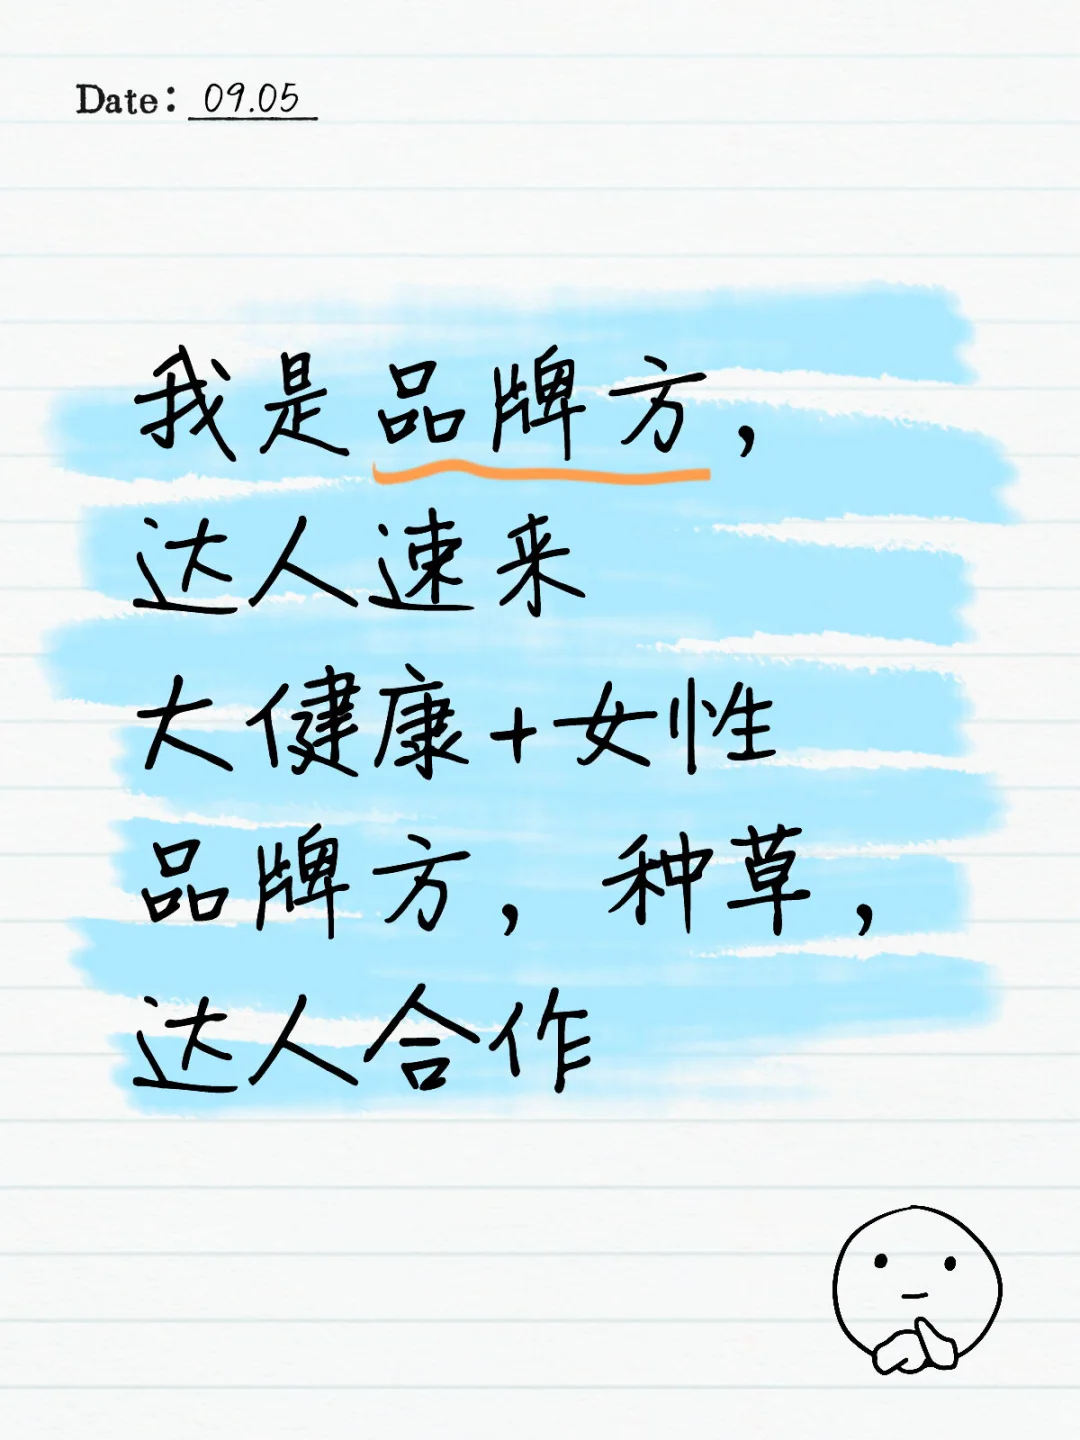 Date: 09.05
我是品牌方，
达人速来
大健康+女性
品牌方，种草，
达人合作